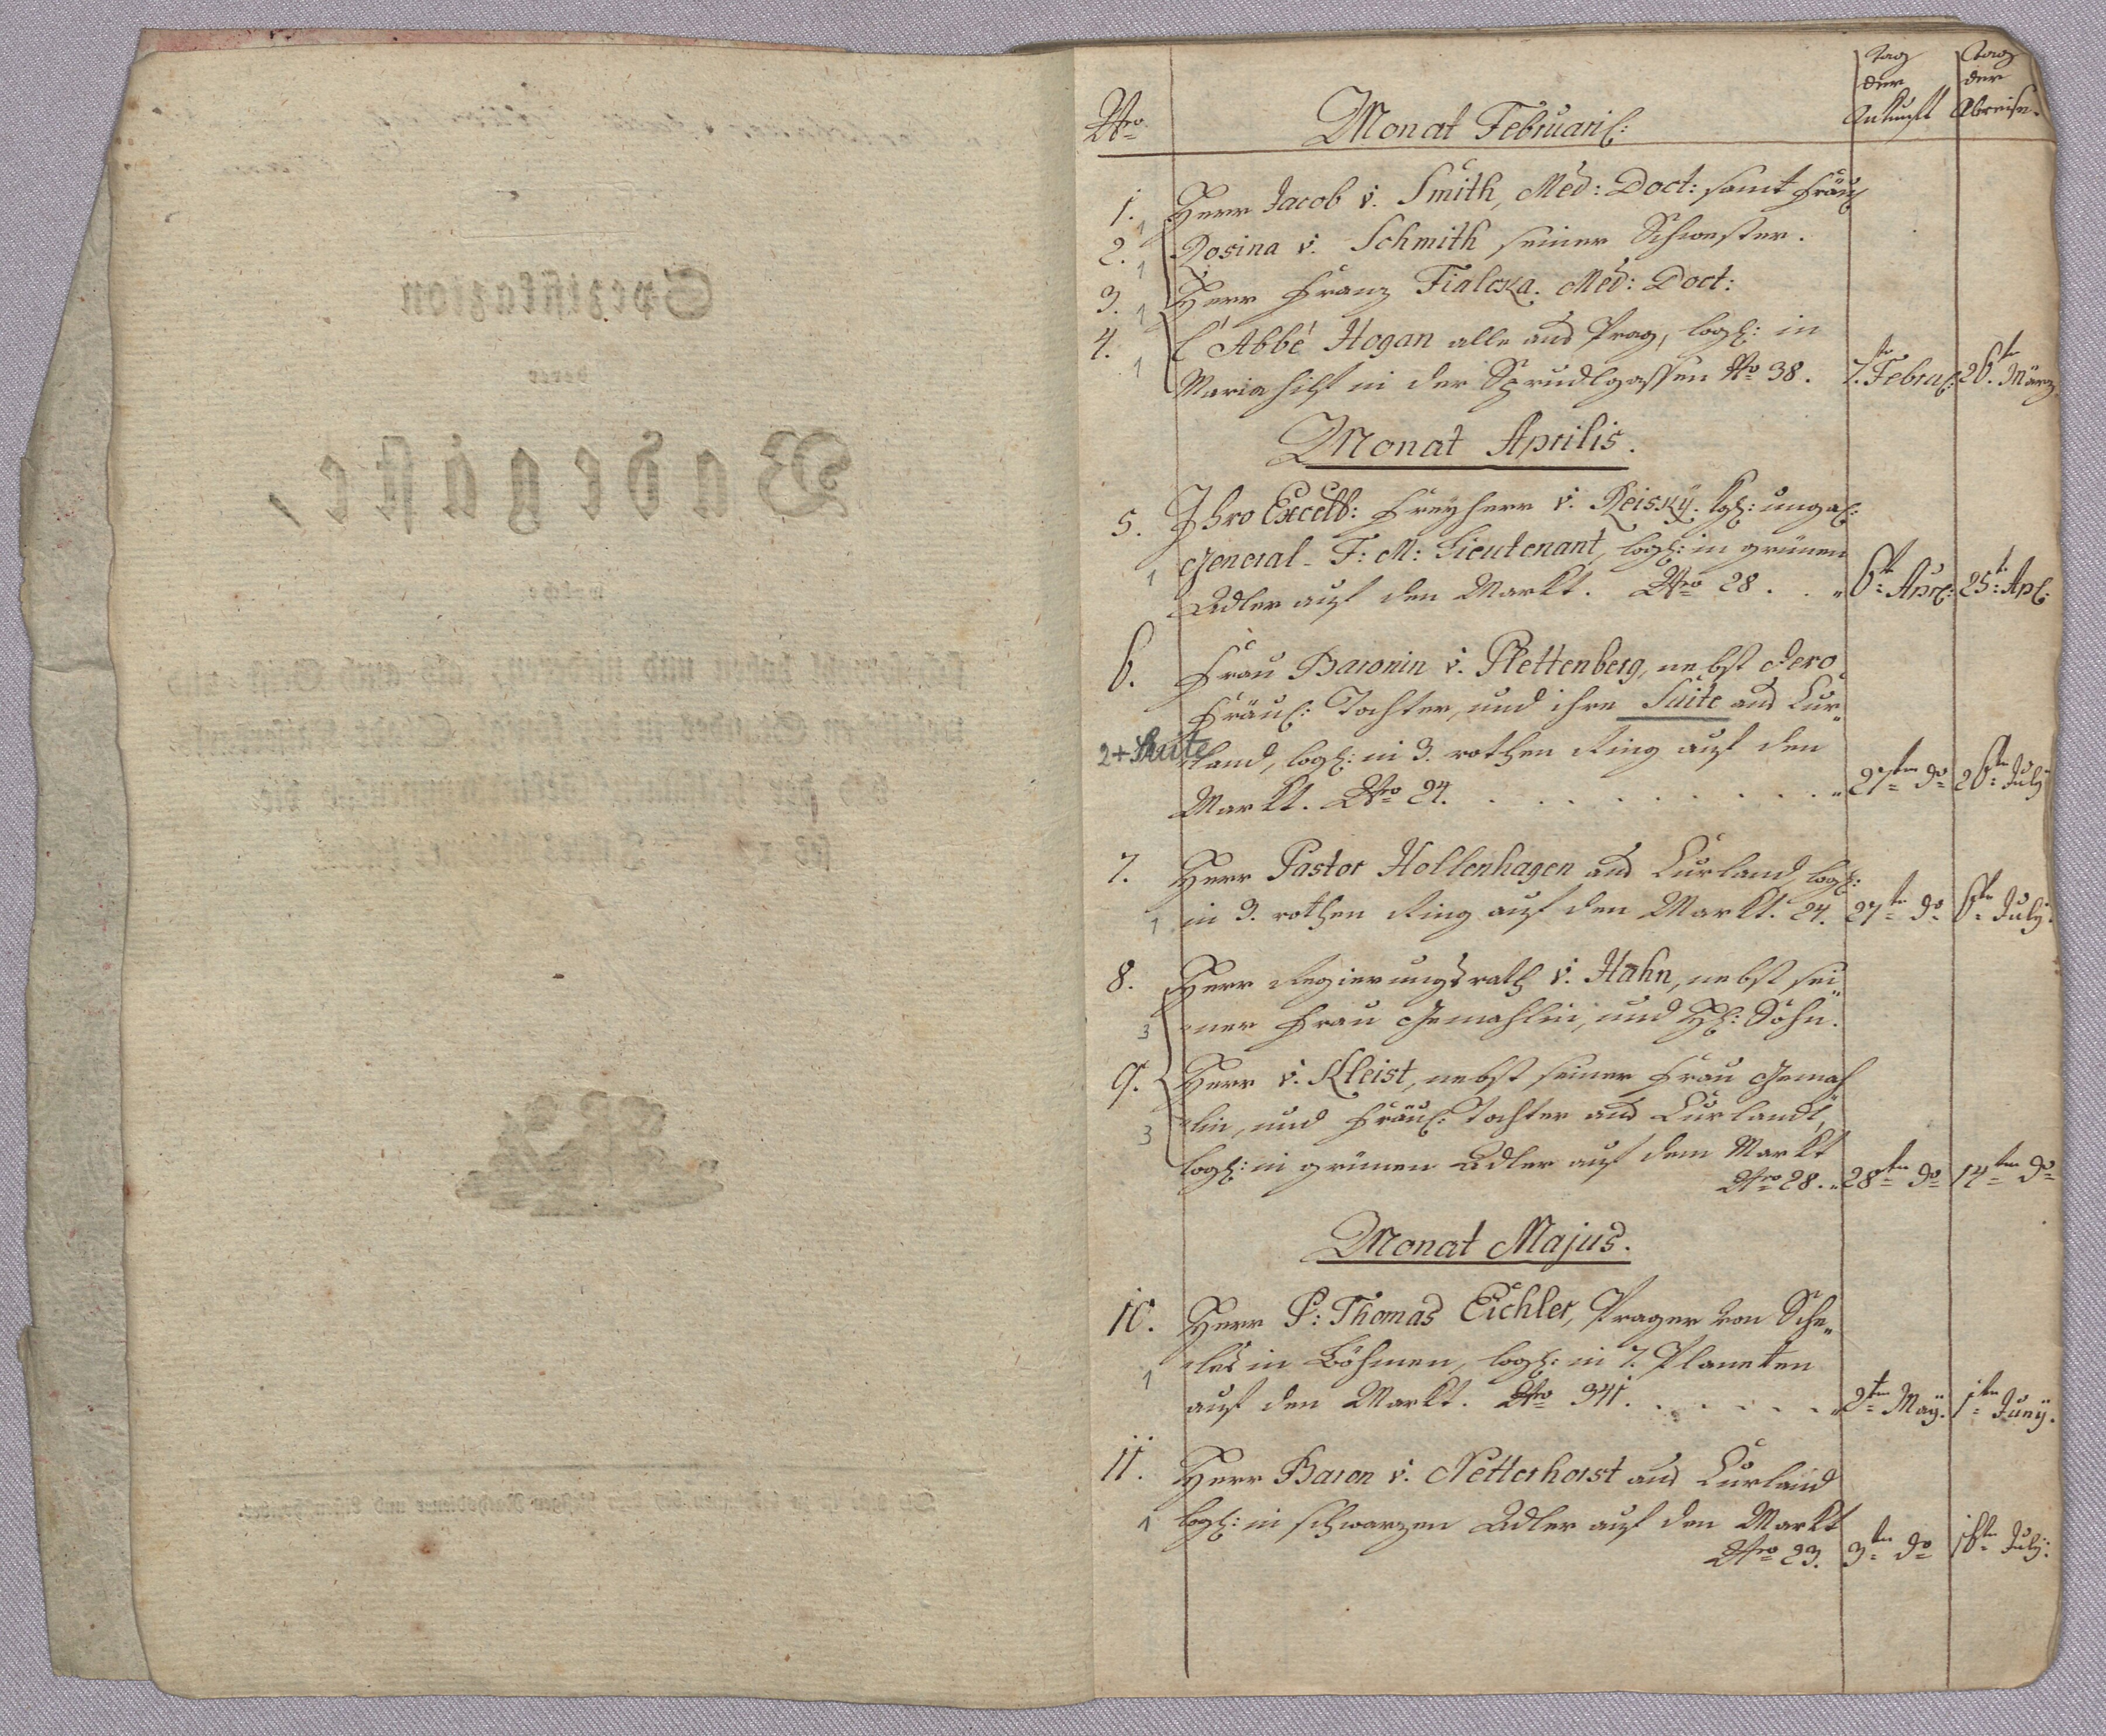 Spezifikazion
derer
Badegäste,
welche
Tag der Ankunft
Tag der Abreise.
Nro
Monat Februari:
1. Herr Jacob v. Smith, Med: Doct: samt Fräul:
2. Rosina v. Schmith seiner Schwester.
3. Herr Franz Fialcka. Med: Doct:
4. l'Abbé Hogan alle aus Prag, logh: in
Mariahilf in der Sprudlgassen No 38. 7te Febru: 26te März.
Monat Aprilis.
5. Ihro Excell: Freyherr v. Reisky. kgh: ungar:
1 General-F: M: Lieutenant, logh: in grünen
Adler auf den Markt. Nro 28. . 6te Apr: 25te Apl:
6. Frau Baronin v. Plettenberg, nebst Dero
Fräul: Tochter, und ihre Suite aus Cur-
2+Suite land, logh: in 3. rothen Ring auf den
Markt. Nro 24. . . . . . . . . . 27ten do 26ten July
7. Herr Pastor Hollenhagen aus Curland, logh:
1 in 3. rothen Ring auf den Markt. 24. 27te do 6ten July.
8. Herr Regierungsrath v. Hahn, nebst sei-
3 ner Frau Gemahlin, und Hh: Sohn.
9. Herr v. Kleist, nebst seiner Frau Gemah
3 lin, und Fräul: Tochter aus Curlandt,
logh: in grünen Adler auf dem Markt
Nro 28. 28ten do 14ten do
Monat Majus.
10. Herr P: Thomas Eichler, Prager von Sche-
1 les in Böhmen, logh: in 7. Planeten
auf den Markt. Nro 341. . . . . . 2ten May. 1ten Juny.
11. Herr Baron v. Netterhorst aus Curland
1 logh: in schwarzen Adler auf den Markt
Nro 23. 3ten do 16ten July: